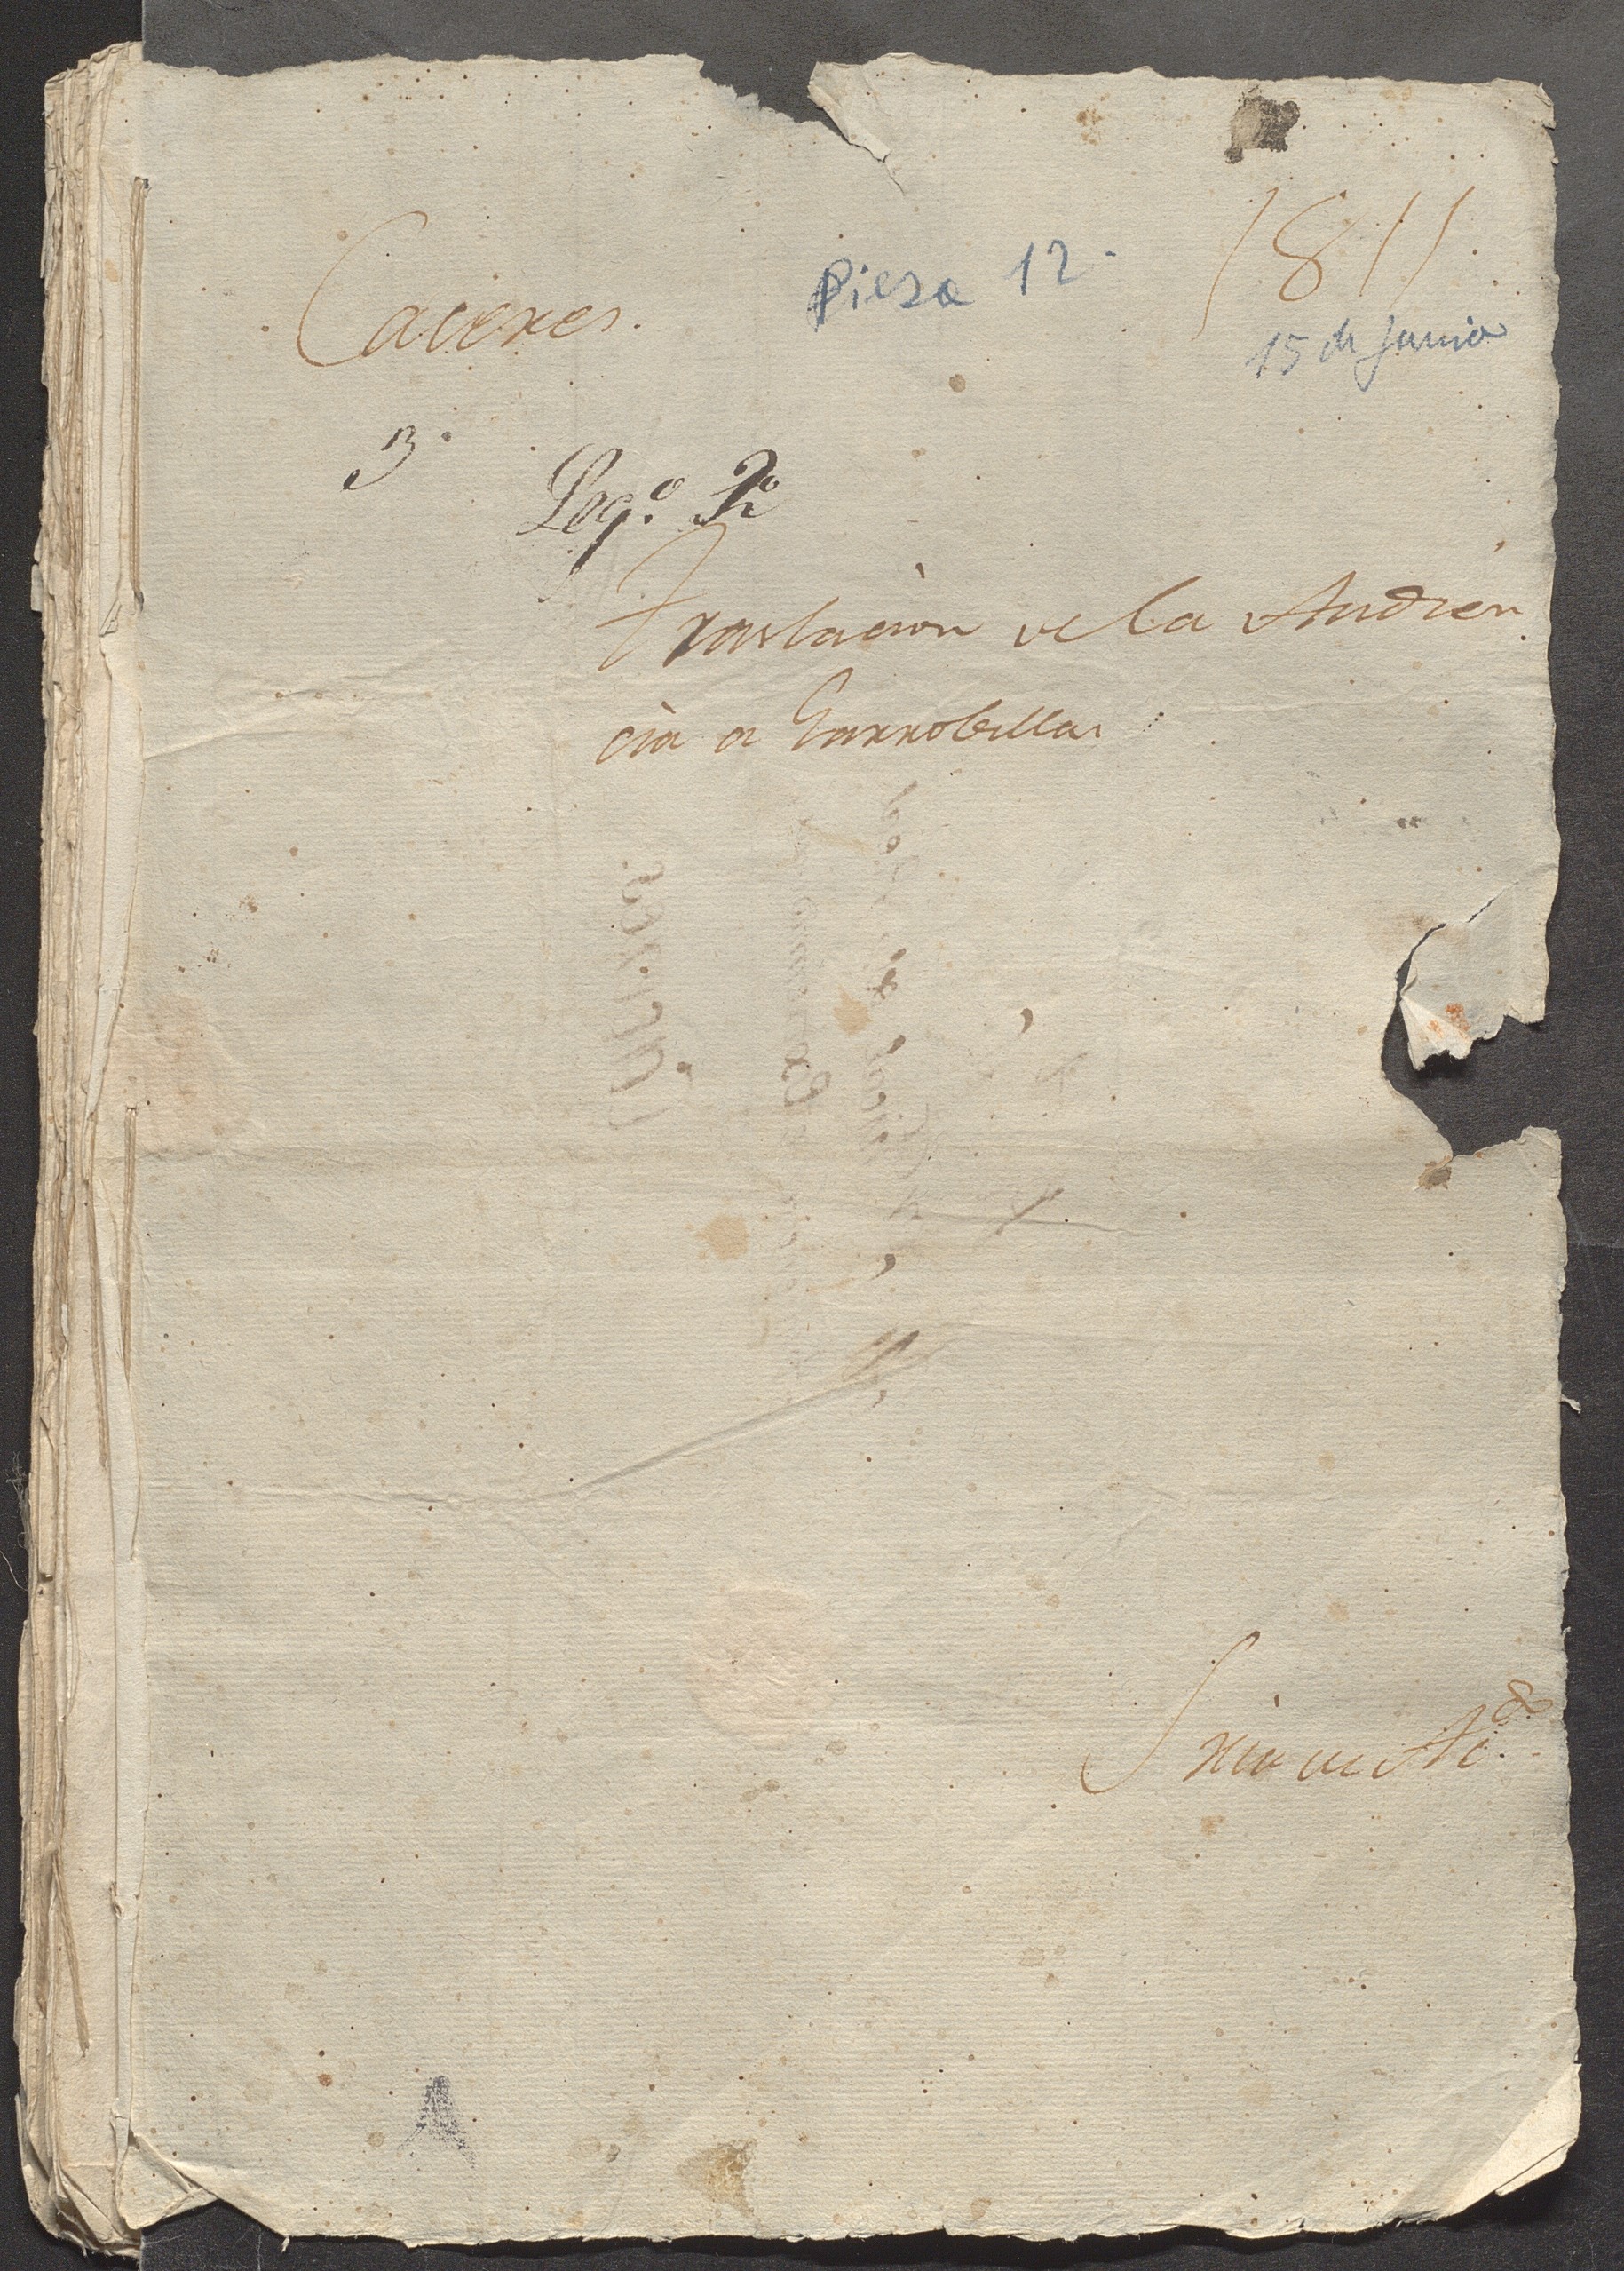 Caceres.
Pieza 12.
1811
15 de Junio
3.
Leg.º 2º
Traslacion de la Audien
cia a Garrobillas
Sria de Ac.do